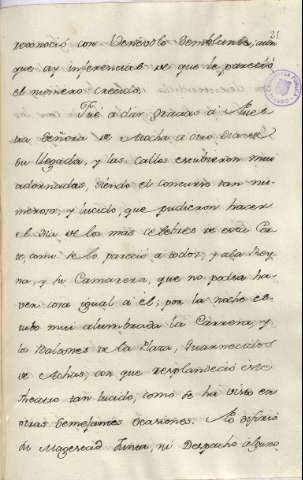 21
reconoció con benévolo semblante, aun
que ay inferencias de que le pareció
el numero crecido.
Fué a dar gracias a Nues
tra Señora de Atocha a otro dia de
su llegada, y las calles estubieron mui
adornadas, siendo el concurso tan nu
meroso, y lucido, que pudieron hacer
el dia de los más celebres de esta Cor
te, como se lo pareció a todos, y a la Rey
na, y su Camarera, que no podia ha
ver cosa igual a el; por la noche es
tubo mui alumbrada la Carrera, y
los Balcones de la Plaza, Guarnecidos
de Achas, con que resplandeció este
theatro tan lucido, como se ha visto en
otras semejantes ocasiones. No
su Magestad Junta, ni Despacho alguno